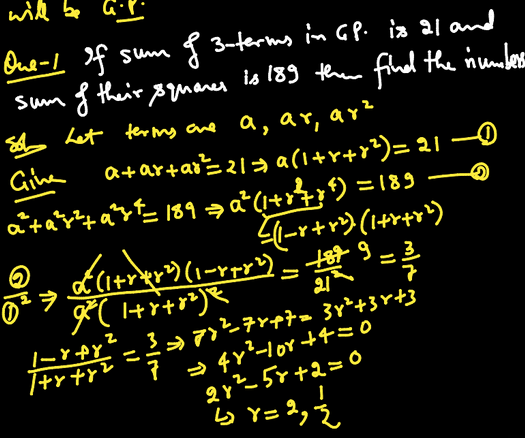 will be G.P.
Que-1 If sum of 3-terms in G.P. is 21 and
sum of their squares is 189 then find the numbers
Sol Let terms are a, ar, ar²
Given a+ar+ar²=21 ⇒ a(1+r+r²) = 21 — ①
a²+a²r²+a²r⁴ = 189 ⇒ a²(1+r²+r⁴) = 189 — ②
=(1-r+r²)(1+r+r²)
②/①² ⇒ a²(1+r+r²)(1-r+r²)/a²(1+r+r²)² = 189/21² 9 = 3/7
1-r+r²/1+r+r² = 3/7 ⇒ 7r²-7r+7 = 3r²+3r+3
⇒ 4r²-10r+4=0
2r²-5r+2=0
↳ r=2, 1/2